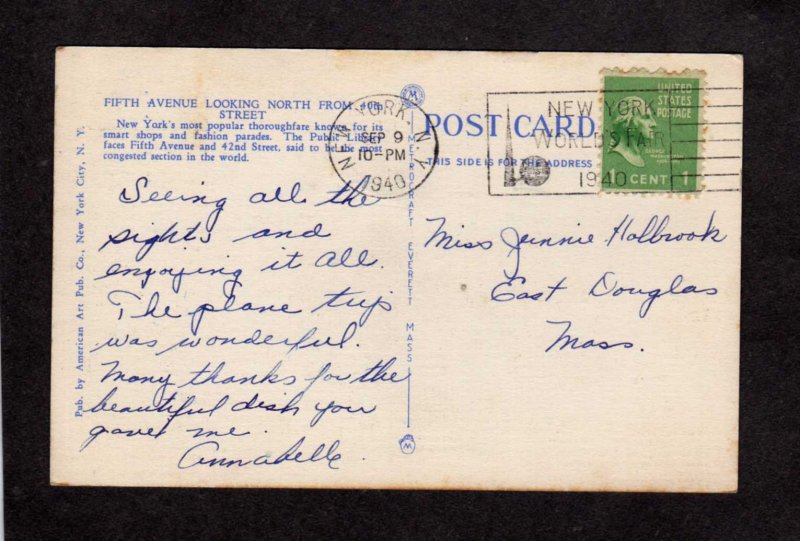 FIFTH AVENUE LOOKING NORTH FROM 40th
STREET
New York's most popular thoroughfare known for its
smart shops and fashion parades. The Public Library
faces Fifth Avenue and 42nd Street, said to be the most
congested section in the world.
Seeing all the
sights and
enjoying it all.
The plane trip
was wonderful.
Many thanks for the
beautiful dish you
gave me.
Annabelle.
Pub. by American Art Pub. Co., New York City, N. Y.
METROCRAFT EVERETT MASS
NEW YORK, N.Y.
SEP 9
10-PM
1940
POST CARD
THIS SIDE IS FOR THE ADDRESS
NEW YORK
WORLD'S FAIR
1940
UNITED
STATES
POSTAGE
GEORGE
WASHINGTON
1 CENT 1
Miss Jennie Holbrook
East Douglas
Mass.